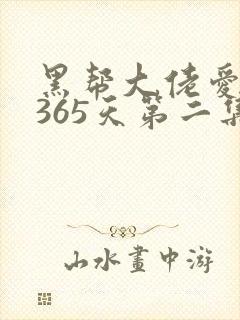 黑帮大佬爱
365天第二集
山水畫中游